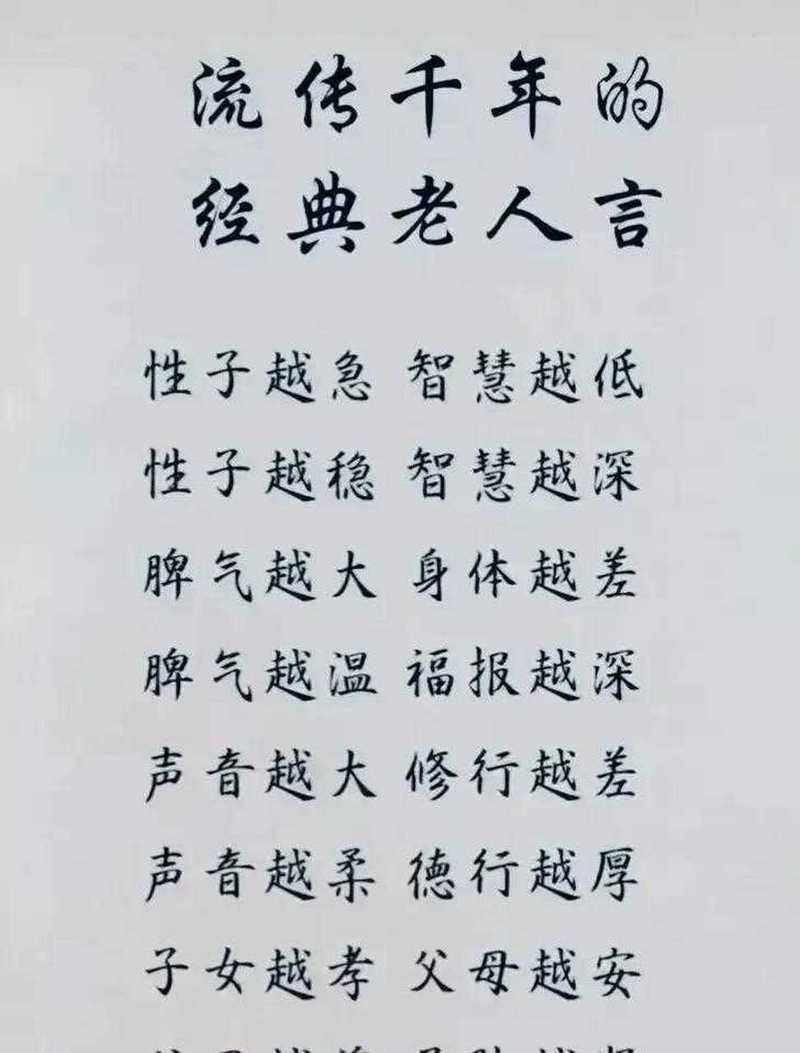 流传千年的
经典老人言
性子越急 智慧越低
性子越稳 智慧越深
脾气越大 身体越差
脾气越温 福报越深
声音越大 修行越差
声音越柔 德行越厚
子女越孝 父母越安